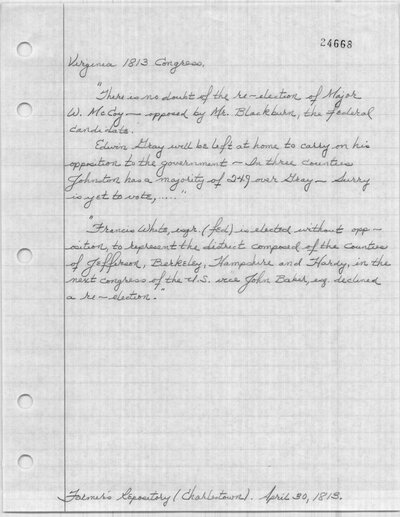 24668
Virginia 1813 Congress.
"There is no doubt of the re-election of Major
W. McCoy — opposed by Mr. Blackburn, the federal
candidate.
Edwin Gray will be left at home to carry on his
opposition to the government — In three counties
Johnston has a majority of 249 over Gray — Surry
is yet to vote, ....."
"Francis White, esqr. (fed) is elected without opp-
osition, to represent the district composed of the Counties
of Jefferson, Berkeley, Hampshire and Hardy, in the
next congress of the U.S. vice John Baker, esq. declined
a re-election."
Farmer's Repository (Charlestown). April 30, 1813.